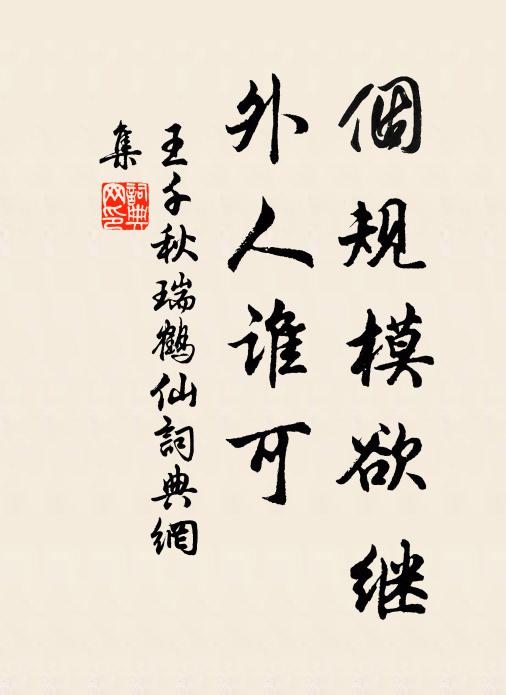 個规模欲继
外人谁可
王千秋瑞鹤仙詞典網
集
詞典网印